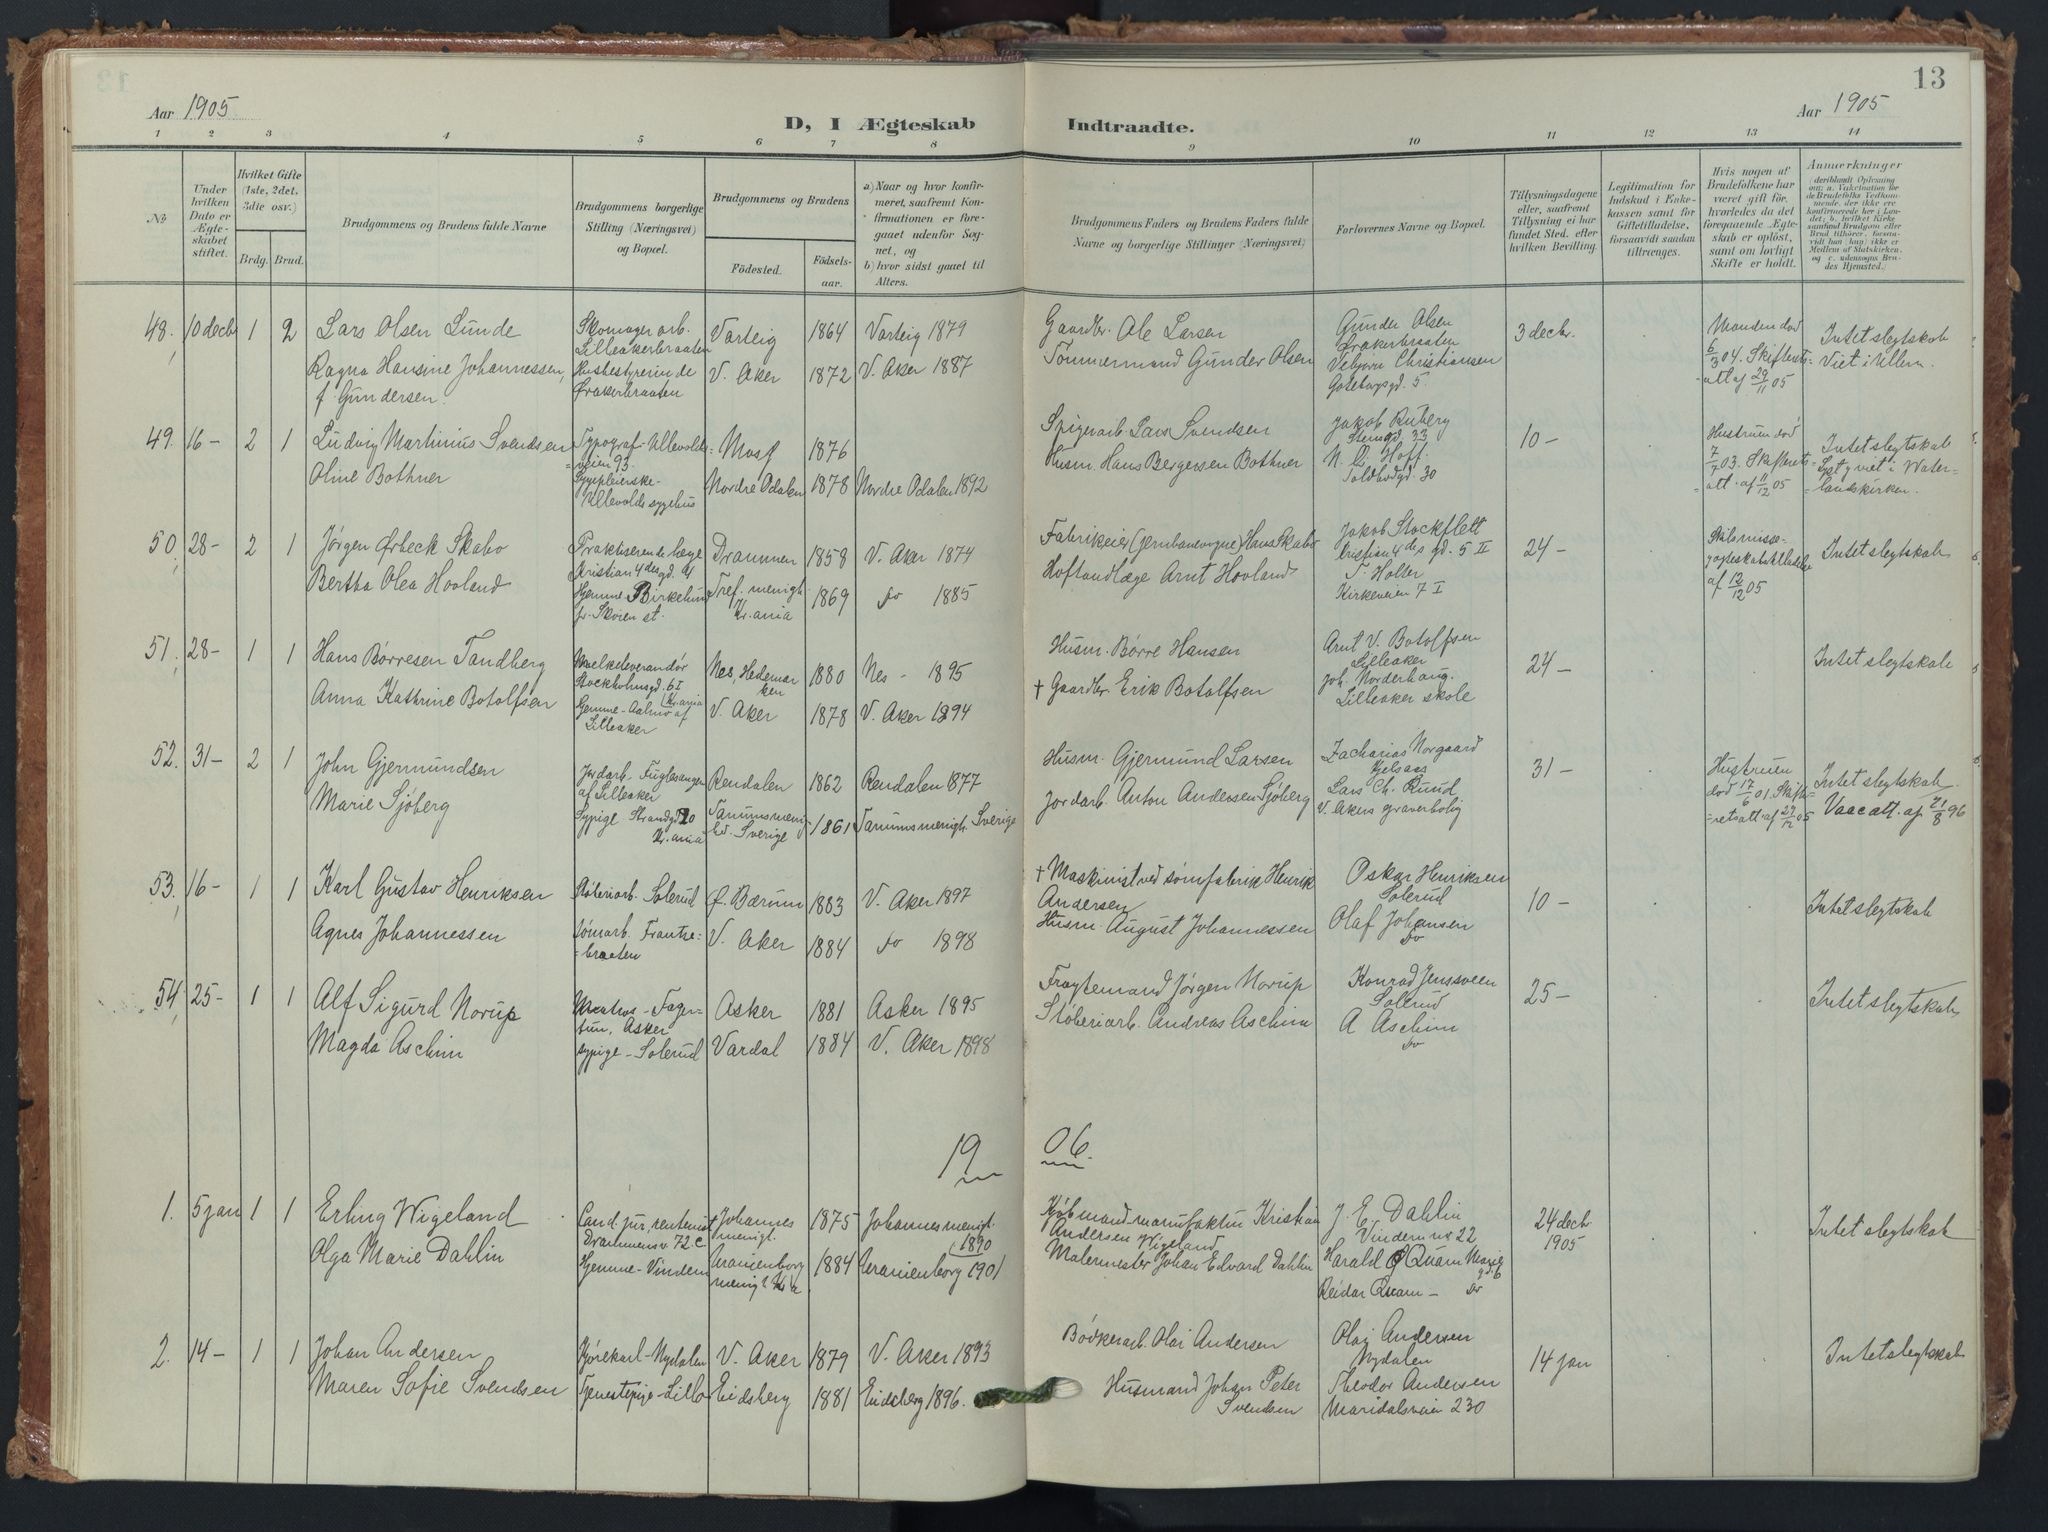 13
Aar 1905
Aar 1905
D, I Ægteskab Indtraadte.
1 2 3 4 5 6 7 8 9 10 11 12 13 14
№
Under hvilken Dato er Ægteskabet stiftet.
Hvilket Gifte (1ste, 2det, 3die osv.)
Brdg. Brud.
Brudgommens og Brudens fulde Navne
Brudgommens borgerlige Stilling (Næringsvei) og Bopæl.
Brudgommens og Brudens
Fødested.
Fødselsaar.
a) Naar og hvor konfirmeret, saafremt Konfirmationen er foregaaet udenfor Sognet, og
b) hvor sidst gaaet til Alters.
Brudgommens Faders og Brudens Faders fulde Navne og borgerlige Stillinger (Næringsvei)
Forlovernes Navne og Bopæl.
Tillysningsdagene eller, saafremt Tillysning ei har fundet Sted, efter hvilken Bevilling.
Legitimation for Indskud i Enkekassen samt for Giftetilladelse, forsaavidt saadan tiltrænges.
Hvis nogen af Brudefolkene har været gift før, hvorledes da det foregaaende Ægteskab er opløst, samt om lovligt Skifte er holdt.
Anmærkninger
(deriblandt Oplysning om: a. Vakcination for de Brudefolks Vedkommende, der ikke ere konfirmerede her i Landet; b. hvilket Kirkesamfund Brudgom eller Brud tilhører, forsaavidt han (hun) ikke er Medlem af Statskirken, og c. udensogns Brudes Hjemsted.)
48. 10 decbr 1 2 Lars Olsen Lunde Skomager arb. Lilleakerbraaten Varteig 1864 Varteig 1879 Gaardbr. Ole Larsen Gunder Olsen Ørakerbraaten 3 decbr. Manden død 6/3 04. Skifterets=att af 29/11 05 Intet slegtskab Viet i Ullern.
Ragna Hansine Johannessen, f. Gundersen. Husbestyrerinde Ørakerbraaten V. Aker 1872 V. Aker 1887 Tømmermand Gunder Olsen Vebjørn Christiansen Gøteborgsgd. 5
49. 16- 2 1 Ludvig Martinius Svendsen Typograf-Ullevolds=veien 93. Moss 1876 Spigerarb. Lars Svendsen Jakob Ruberg Stensgd. 33 10- Hustruen død 7/7 03. Skifterets=att. af 11/12 05 Intet slegtskab viet i Water=landskirken.
Oline Bothner Sygepleierske- Ullevolds sygehus Nordre Odalen 1878 Nordre Odalen 1892 Husm. Hans Bergersen Bothner Hoff. Toldbodgd. 30
50. 28- 2 1 Jørgen Ørbeck Skabo Praktiserende læge Kristian 4 des gd. 4 Drammen 1858 V. Aker 1874 Fabrikeier (jernbanevogne) Hans Skabo Jakob Stockflett Kristian 4 des gd. 5 II 24- af 12/12 05 Intet slegtskab
Bertha Olea Hovland Hjemme Birkelund pr. Skøien st. Tref. menigh. Kr.ania 1869 do 1885 Hoftandlæge Arnt Hovland T. Holler Kirkeveien 7 I
51. 28- 1 1 Hans Børresen Tandberg Melkeleverandør Stockholmsgd. 6 I Kr.ania Nes, Hedemarken 1880 Nes - 1895 Husm. Børre Hansen Arnt V. Botolfsen Lilleaker 24- Intet slegtskab
Anna Kathrine Botolfsen Hjemme- af Lilleaker V. Aker 1878 V. Aker 1894 † Gaardbr. Erik Botolfsen Joh. Norderhaug. Lilleaker skole
52. 31- 2 1 John Gjermundsen Jordarb. Fuglesangen af Lilleaker Rendalen 1862 Rendalen 1877 Husm. Gjermund Larsen Zacharias Norgaard Kjelsaas 31- Hustruen død 17/6 01. Skifte=retsatt. af 27/12 05 Intet slegtskab Vaccatt. af 21/8 96
Marie Sjøberg Sypige Strandgd. 20 Kr.ania Tanumsmenighed. Sverige 1861 Tanumsmenigh. Sverige Jordarb. Anton Andersen Sjøberg Lars Ch. Ruud V. Akers graverbolig
53. 16- 1 1 Karl Gustav Henriksen Støberiarb. Solerud Ø. Bærum 1883 V. Aker 1897 † Maskinist ved sømfabrik Henrik Andersen Oskar Henriksen Solerud 10- Intet slegtskab
Agnes Johannessen Sømarb. Frantze=braaten V. Aker 1884 do 1898 Husm. August Johannessen Olaf Johansen do
54. 25- 1 1 Alf Sigurd Norup Matros - Fagertun, Asker Asker 1881 Asker 1895 Fragtemand Jørgen Norup Konrad Jenssveen Solerud 25- Intet slegtskab
Magda Aschim sypige - Solerud Vardal 1884 V. Aker 1898 Støberiarb. Andreas Aschim A Aschim do
1906.
1. 5 jan 1 1 Erling Wigeland Cand. jur, rentenist Drammensv. 72 c. Johannes menigh. 1875 Johannes menigh. 1890 Kjøbmand-manufaktur Kristian Andersen Wigeland J. E. Dahlin Vindern nr 22 24 decbr 1905 Intet slegtskab
Olga Marie Dahlin Hjemme-Vindern Uranienborg menigh Kr.a 1884 Uranienborg 1901 Malermester Johan Edvard Dahlin Harald Quam Reidar Quam - do
2. 14- 1 1 Johan Andersen Kjørekarl-Nydalen V. Aker 1879 V. Aker 1893 Bødkerarb. Olai Andersen Olai Andersen Nydalen 14 jan Intet slegtskab
Maren Sofie Svendsen Tjenestepige-Lillo Eidsberg 1881 Eidsberg 1896. Husmand Johan Peter Svendsen Theodor Andersen Maridalsveien 230